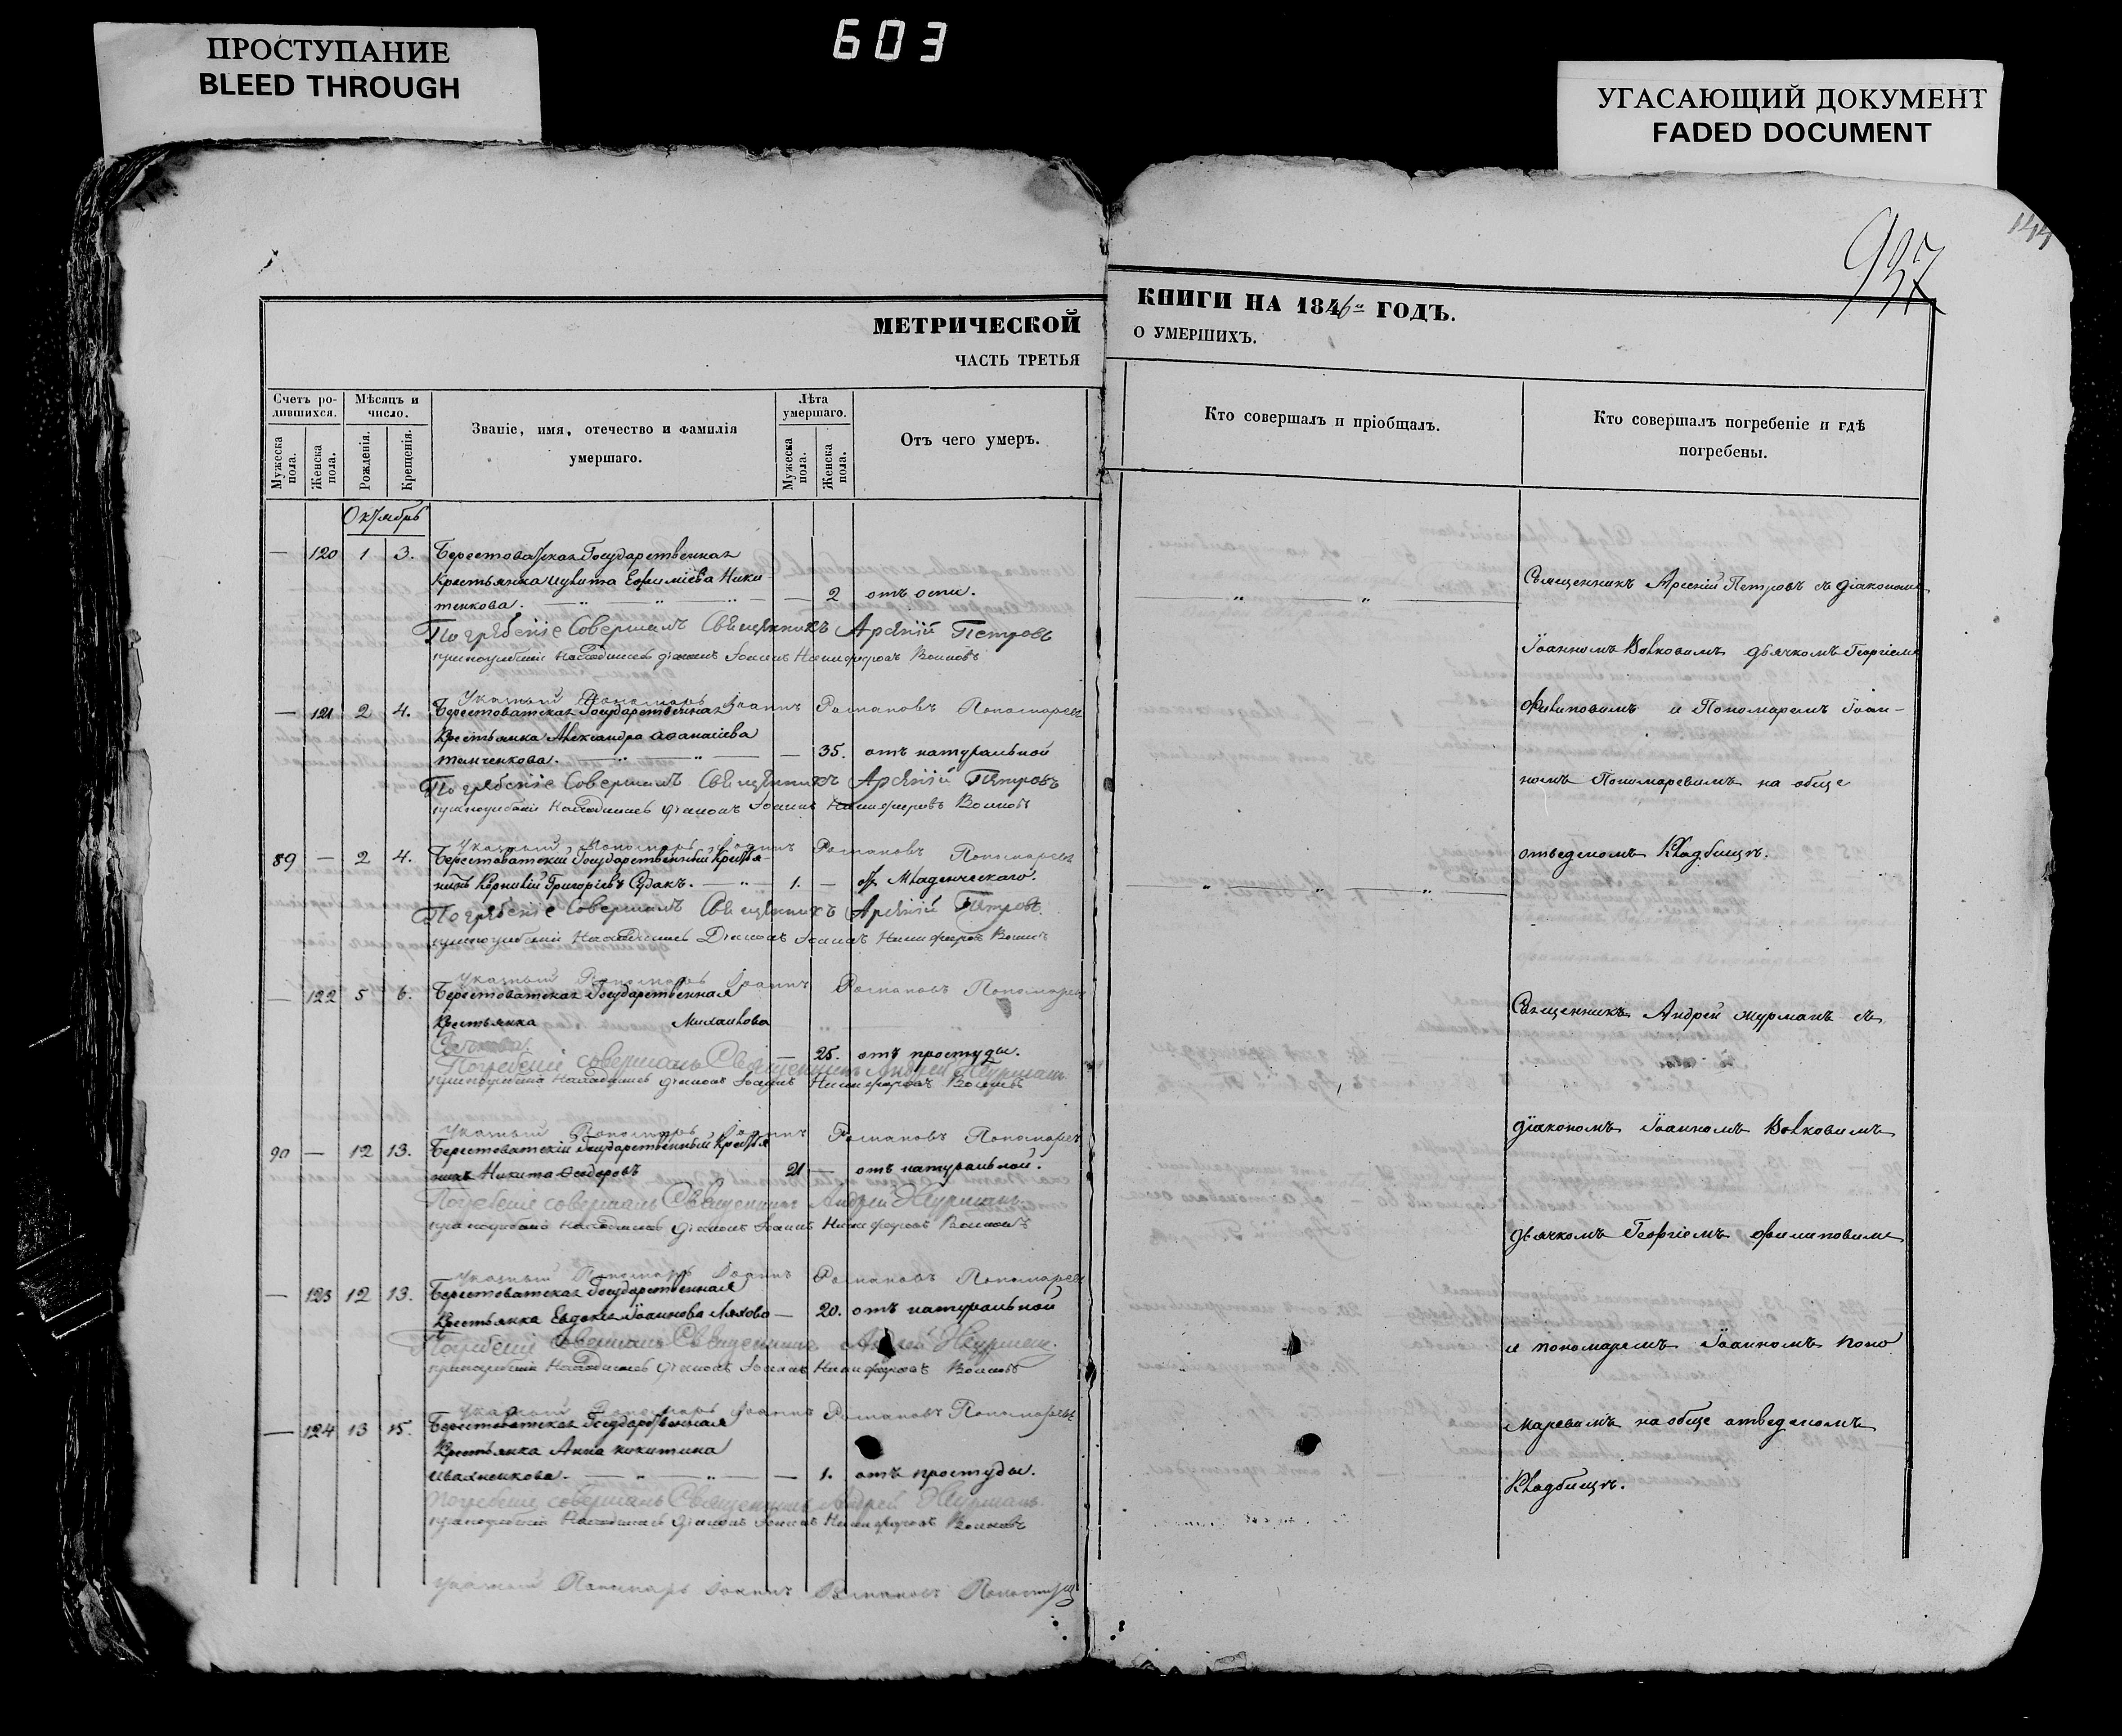 ПРОСТУПАНИЕ
BLEED THROUGH
603
УГАСАЮЩИЙ ДОКУМЕНТ
FADED DOCUMENT
144
937
МЕТРИЧЕСКОЙ
ЧАСТЬ ТРЕТЬЯ
КНИГИ НА 1846 ГОДЪ.
О УМЕРШИХЪ.
Счетъ ро-
дившихся.
Мужеска пола.
Женска пола.
Мѣсяцъ и
число.
Рожденія.
Крещенія.
Званіе, имя, отечество и фамилія
умершаго.
Лѣта
умершаго.
Мужеска пола.
Женска пола.
Отъ чего умеръ.
Кто совершалъ и пріобщалъ.
Кто совершалъ погребеніе и гдѣ
погребены.
Октябрь
— 120 1 3. Берестоватская Государственная
Крестьянка Ефиміева Ники-
тенкова. — 2 отъ оспи.
Погребеніе Совершалъ Священникъ Арсеній Петровъ
находились Діаконъ Іоаннъ Никифоровъ Волковъ
Указный Пономарь Іоаннъ Романовъ Пономаревъ
— 121 2 4. Берестоватская Государственная
Крестьянка Александра Аѳанасіева
— 35. отъ натуральной
Погребеніе Совершалъ Священникъ Арсеній Петровъ
находились Діаконъ Іоаннъ Никифоровъ Волковъ
Указный Пономарь Іоаннъ Романовъ Пономаревъ
89 — 2 4. Берестоватскій Государственный Крестья-
нинъ Корнилій Григоріевъ Судакъ. 1. — отъ Младенческаго.
Погребеніе Совершалъ Священникъ Арсеній Петровъ
находились Діаконъ Іоаннъ Никифоровъ Волковъ
Указный Пономарь Іоаннъ Романовъ Пономаревъ
— 122 5 6. Берестоватская Государственная
Крестьянка Михаилова
— 25. отъ простуды.
Погребеніе совершалъ Священникъ Андрей Журманъ
находились Діаконъ Іоаннъ Никифоровъ Волковъ
Указный Пономарь Іоаннъ Романовъ Пономаревъ
90 — 12 13. Берестоватскій Государственный Крестья
нинъ Никита Ѳедоровъ 21 — отъ натуральной.
Погребеніе совершалъ Священникъ Андрей Журманъ
находились Діаконъ Іоаннъ Никифоровъ Волковъ
Указный Пономарь Іоаннъ Романовъ Пономаревъ
— 123 12 13. Берестоватская Государственная
Крестьянка Евдокія Іоаннова Ляхова — 20. отъ натуральной
Погребеніе совершалъ Священникъ Андрей Журманъ
находились Діаконъ Іоаннъ Никифоровъ Волковъ
Указный Пономарь Іоаннъ Романовъ Пономаревъ
— 124 13 15. Берестоватская Государственная
Крестьянка Анна Никитина
— 1. отъ простуды.
Погребеніе совершалъ Священникъ Андрей Журманъ
находились Діаконъ Іоаннъ Никифоровъ Волковъ
Указный Пономарь Іоаннъ Романовъ Пономаревъ
Священникъ Арсеній Петровъ съ діакономъ
Іоанномъ Волковимъ дьячкомъ Георгіемъ
Филиповимъ и Пономаремъ Іоан-
номъ Пономаревимъ на обще
отведеномъ Кладбищѣ.
Священникъ Андрей Журманъ съ
діакономъ Іоанномъ Волковимъ
дьячкомъ Георгіемъ Филиповимъ
и пономаремъ Іоанномъ Поно
маревимъ на обще отведеномъ
Кладбищѣ.